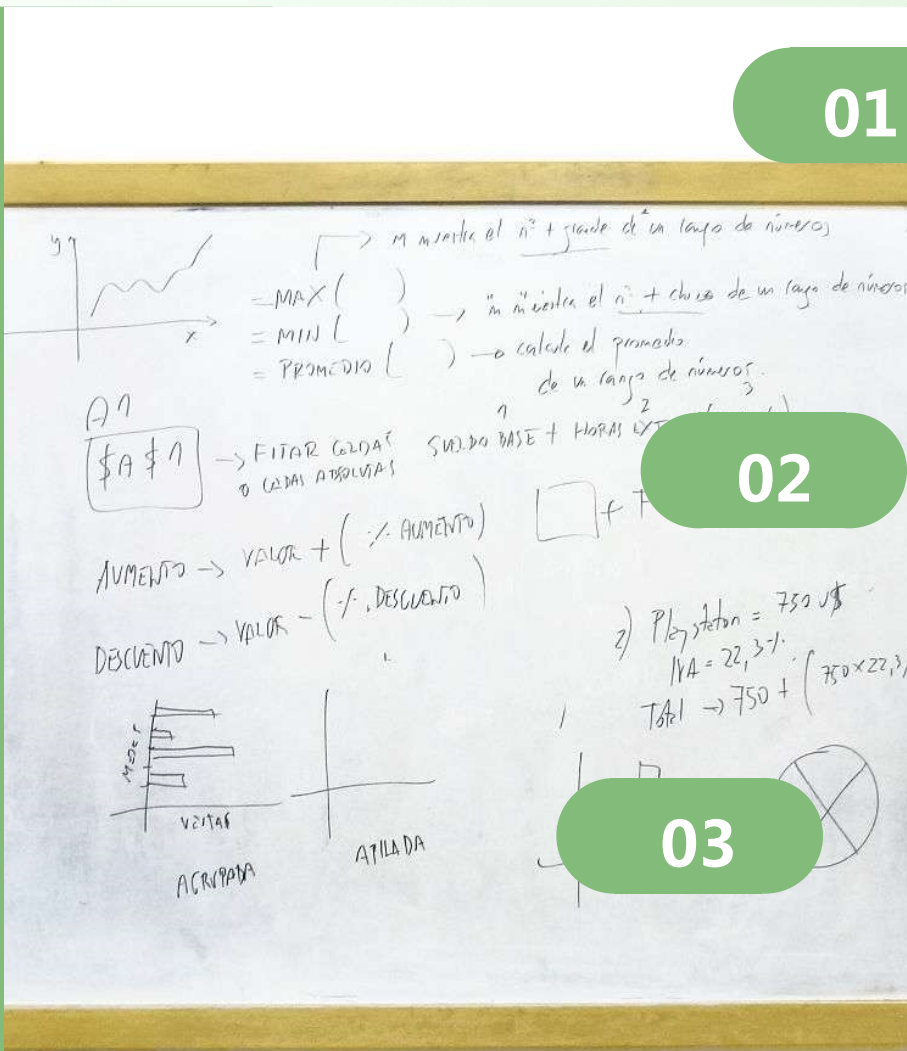 01
y
x
muestra el nº + grande de un rango de números
= MAX ( )
= MIN ( ) → muestra el nº + chico de un rango de números
= PROMEDIO ( ) → calcula el promedio
de un rango de números.
A1
1 2 3
$A$1 → FITAR CELDAS SUELDO BASE + HORAS EXT
O CELDAS ABSOLUTAS
02
+
AUMENTO → VALOR + ( % AUMENTO)
DESCUENTO → VALOR - ( % DESCUENTO)
2) Playstation = 750 U$
IVA = 22,3%
Total → 750 + (750x22,3
MESES
VENTAS
AGRUPADA
APILADA
03